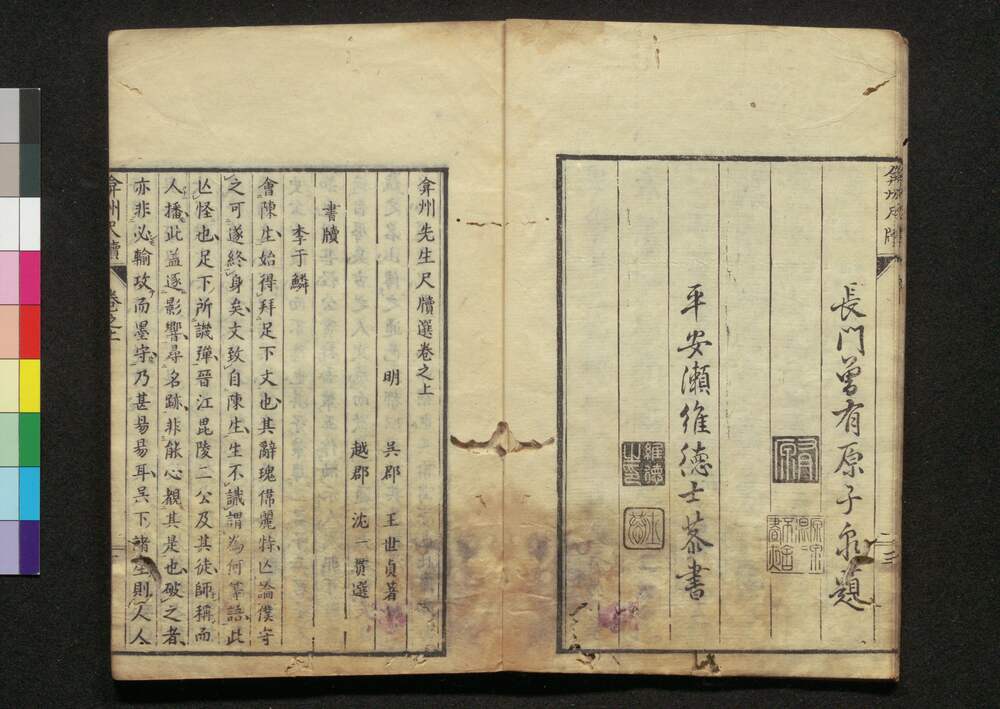 長門曽有原子泉題
平安瀬維德士恭書
維德
之印
弇州先生尺牘選卷之上
明 吳郡 王世貞著
越郡 沈一貫選
書牘
李于鱗
會陳生始得拜足下文也其辭瑰偉麗特亡論僕守
之可遂終身矣文致自陳生生不識謂為何等語此
亡怪也足下所譏彈晉江毘陵二公及其徒師稱而
人播此盖逐影響尋名跡非能心覩其是也破之者
亦非必輸攻而墨守乃甚易易耳吳下諸生則人人
弇州尺牘
卷之上